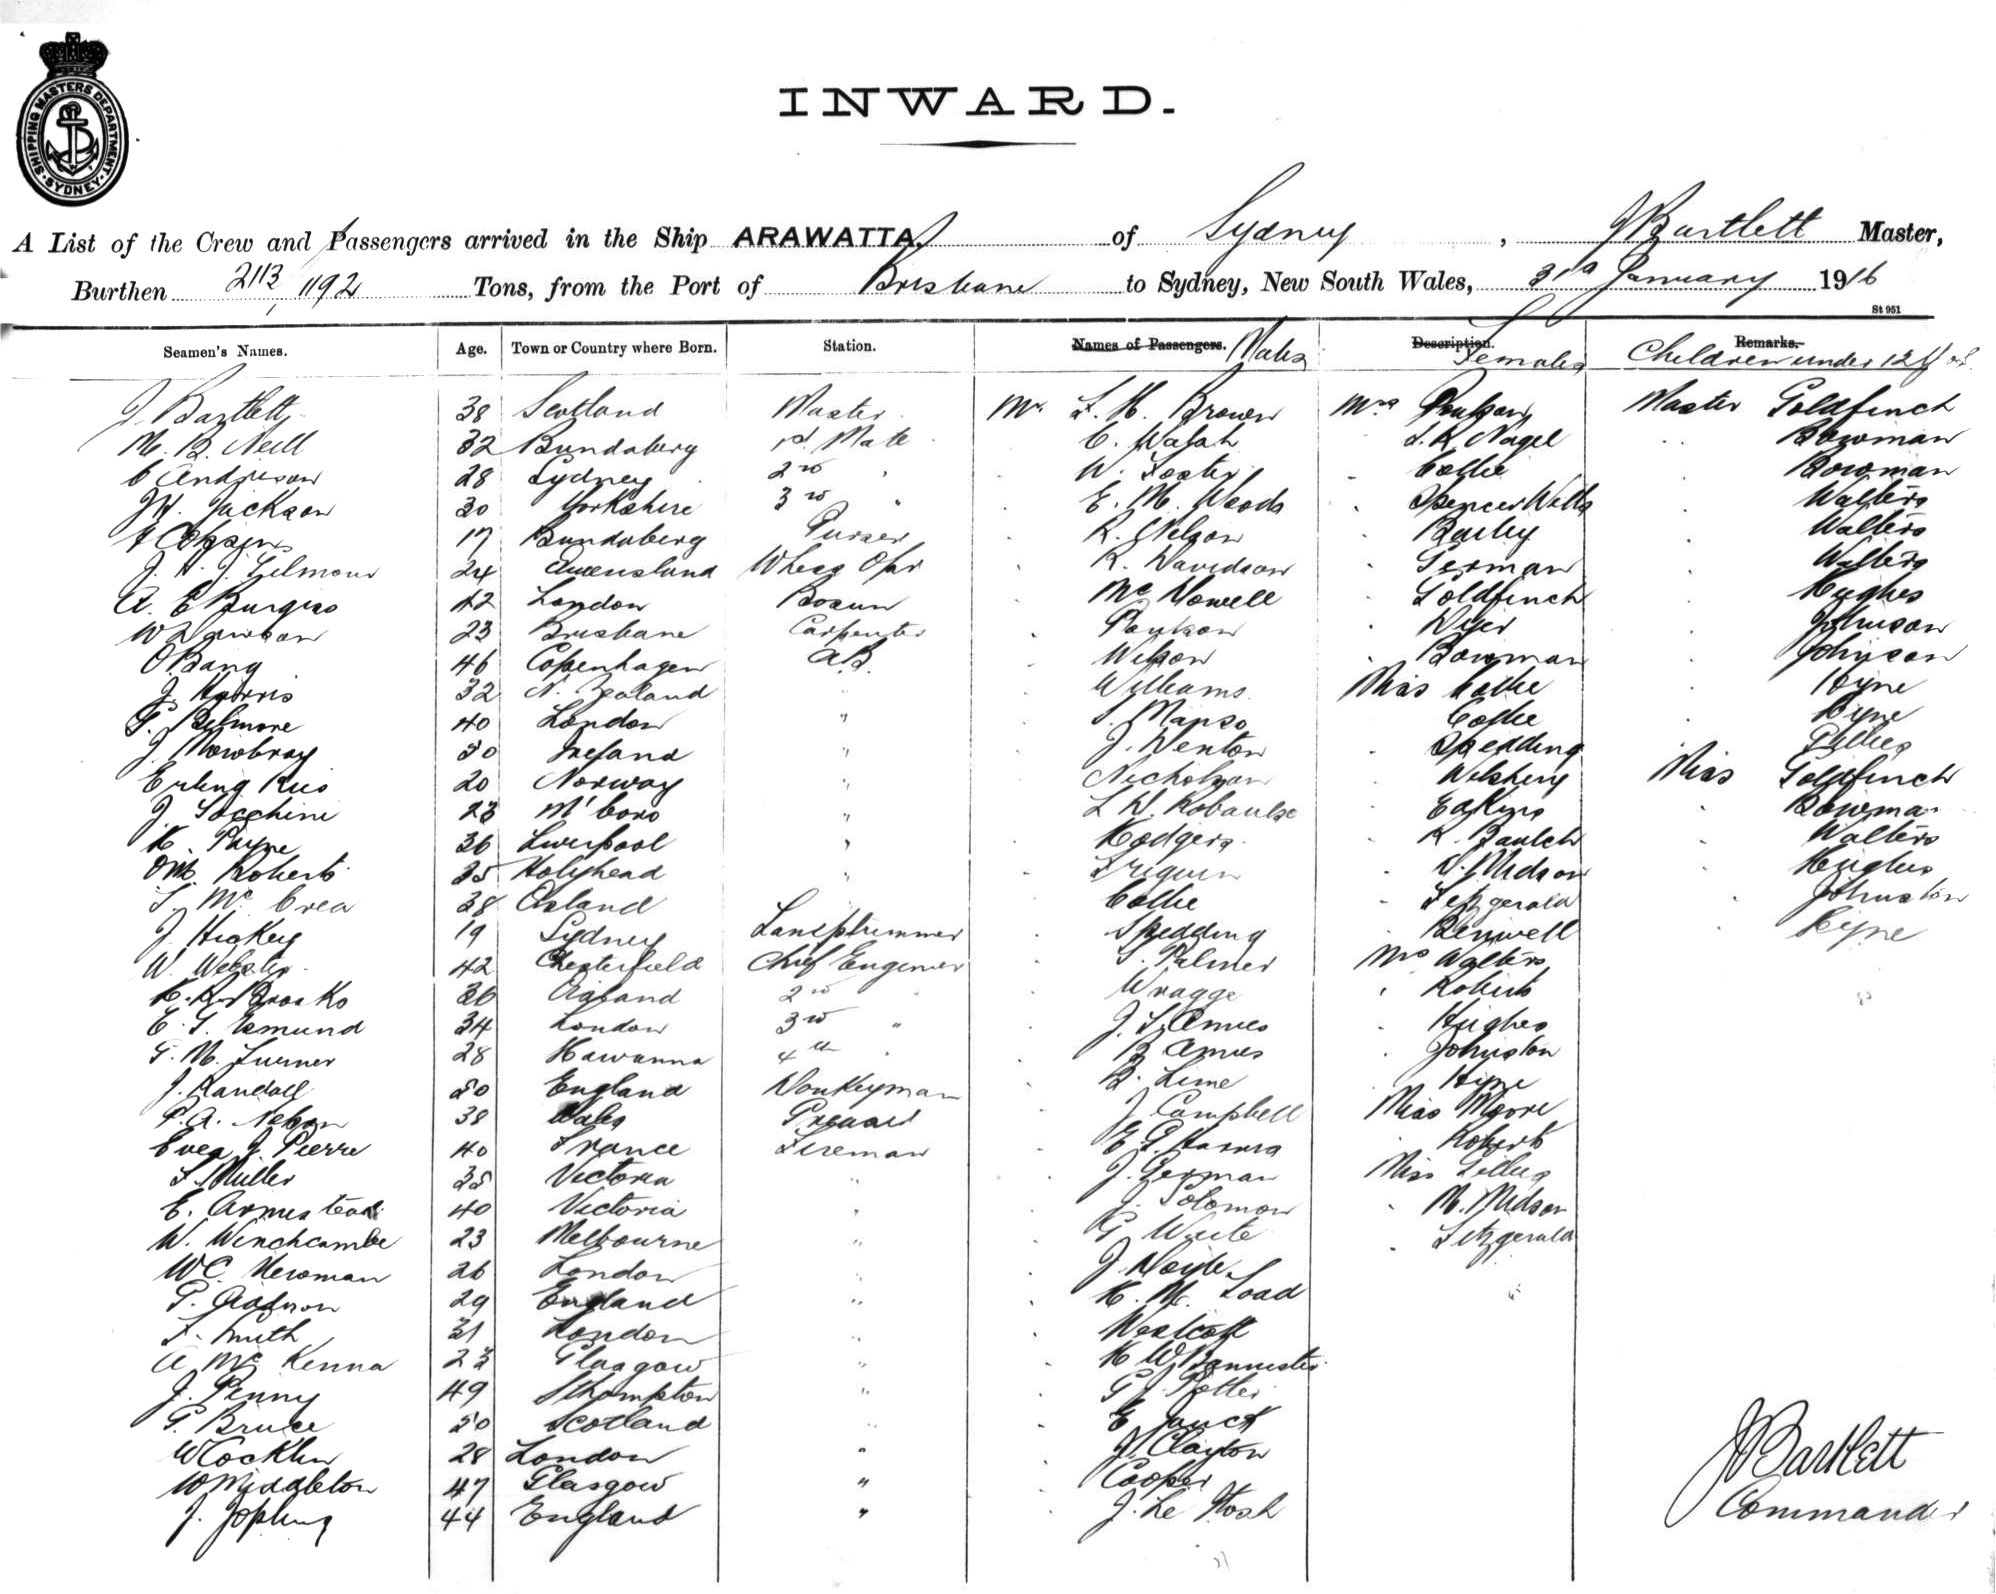 SHIPPING MASTERS DEPARTMENT. SYDNEY.
INWARD.
A List of the Crew and Passengers arrived in the Ship ARAWATTA of Sydney, J Bartlett Master,
Burthen 2113/1192 Tons, from the Port of Brisbane to Sydney, New South Wales, 3rd January 1916
St 951
Seamen's Names. Age. Town or Country where Born. Station. Names of Passengers. Males Description. Females Remarks. Children under 12 Yrs
J. Bartlett 38 Scotland Master Mr. F. H. Brown Mrs Poulson Master Goldfinch
M. B. Neill 32 Bundaberg 1st Mate C. Walsh S. R. Nagel Bowman
C Anderson 28 Sydney 2nd " W. Foster Collie Bowman
J H. Jackson 30 Yorkshire 3rd " E. M. Woods Spencer Wells Walters
17 Bundaberg Purser R. Nelson Bailey Walters
J. H. J. Gilmour 24 Queensland Whess Opr R. Davidson German Walters
A. E Burgiss 42 London Bosun McDowell Goldfinch Hughes
W Lawson 23 Brisbane Carpenter Poulson Dyer Johnson
O Bang 46 Copenhagen AB. Wilson Bowman Johnson
J. Harris 32 N. Zealand " Williams Miss Collie Hyne
G. Belmore 40 London " S. Manso Collie Hyne
J Mowbray 30 Ireland " J. Denton Spedding Gillies
Erling Riis 20 Norway " Nicholson Wilshing Miss Goldfinch
J. Sacchini 23 M'boro " Eakins Bowman
H. Payne 36 Liverpool " Hodgers R. Baulch Walters
Roberts 35 Holyhead " D. Midson Hughes
S. McCrea 38 Collie Fitzgerald Johnston
J Hickey 19 Sydney Lamptrimmer Spedding Benwell Hyne
W. Webster 42 Chesterfield Chief Engineer S. Palmer Mrs Walters
36 2nd " Wragge Roberts
E. G. Esmund 34 London 3rd " J. S. Amies Hughes
G. M. Turner 28 Hawanna 4th " B Amies Johnston
J. Randall 50 England Donkeyman B. Lime Hyne
P. A. Nelson 38 Wales Greaser J Campbell Miss Moore
J. Pierre 40 France Fireman E. G. Harris Roberts
F. Muller 35 Victoria " J. German Miss Gillies
E. Armistead 40 Victoria " J. Solomon M. Midson
W. Winchcombe 23 Melbourne " G Waite Fitzgerald
W C. Newman 26 London " J. Doyle
29 England " H. M. Load
F. Smith 31 London " Westcott
A McKenna 23 Glasgow " H W Bannister
J. Penny 49 Sthampton "
G. Bruce 50 Scotland " E. Janck
W Cocklin 28 London " J. Clayton
W Middleton 47 Glasgow " Cooper
J. Jopling 44 England " J. Le
J Bartlett
Commander